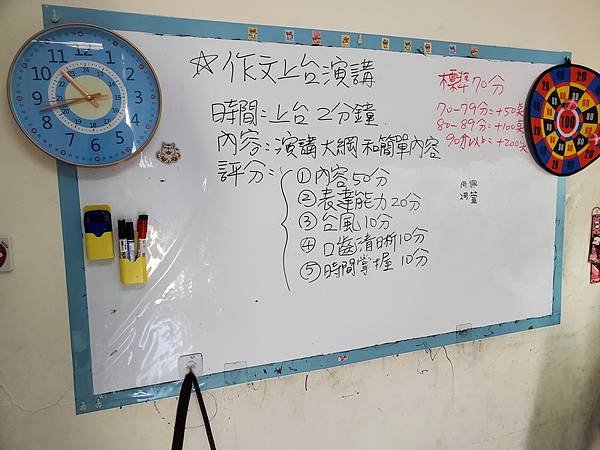 ☆作文上台演講
時間：上台 2分鐘
內容：演講大綱和簡單內容
評分：
①內容 50分
②表達能力 20分
③台風 10分
④口齒清晰 10分
⑤時間掌握 10分
標準 70分
70-79分=+50
80-89分=+100
90分以上=+200